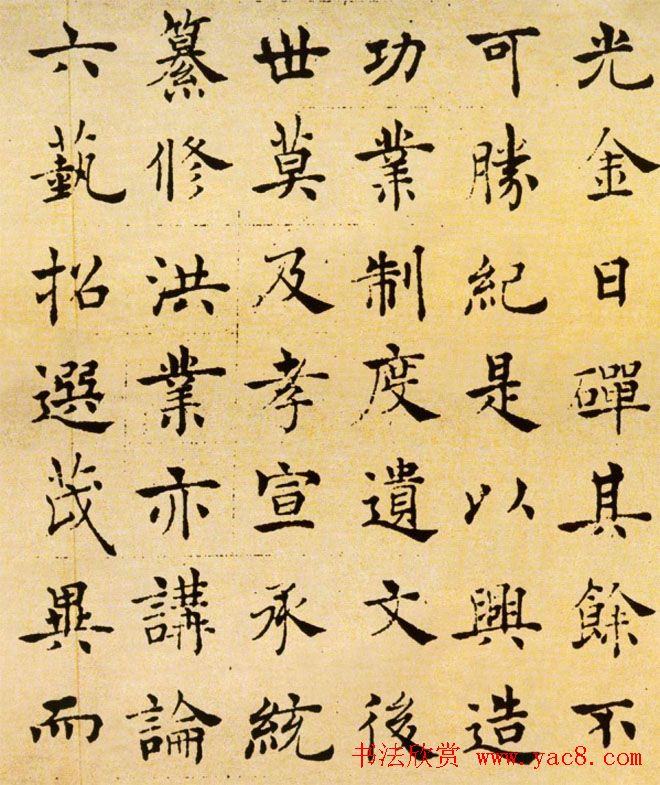 光金日磾其餘不
可勝紀是以興造
功業制度遺文後
世莫及孝宣承統
纂修洪業亦講論
六藝招選茂異而
书法欣赏 www.yac8.com